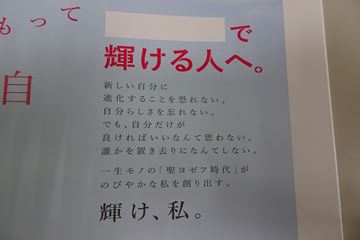 もって
自
で
輝ける人へ。
新しい自分に
進化することを恐れない。
自分らしさを忘れない。
でも、自分だけが
良ければいいなんて思わない。
誰かを置き去りになんてしない。
一生モノの「聖ヨゼフ時代」が
のびやかな私を創り出す。
輝け、私。